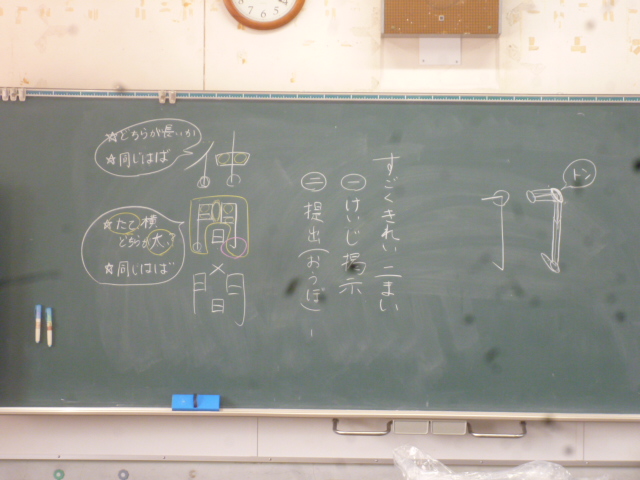 トン
すごくきれい 二まい
㊀けいじ掲示
㊁提出(おうぼ)ー
☆どちらが長いか
☆同じはば
仲
☆たて横
どちらが大?
☆同じはば
間
×
間